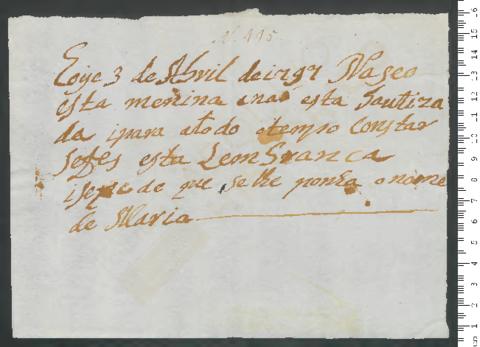 N. 115
Eoje 3 de Abril de 1797 Naseo
esta menina enaõ esta Bautiza
da ipara atodo otempo Constar
sefes esta LemBranca
ipede que selhe ponha onome
de Maria